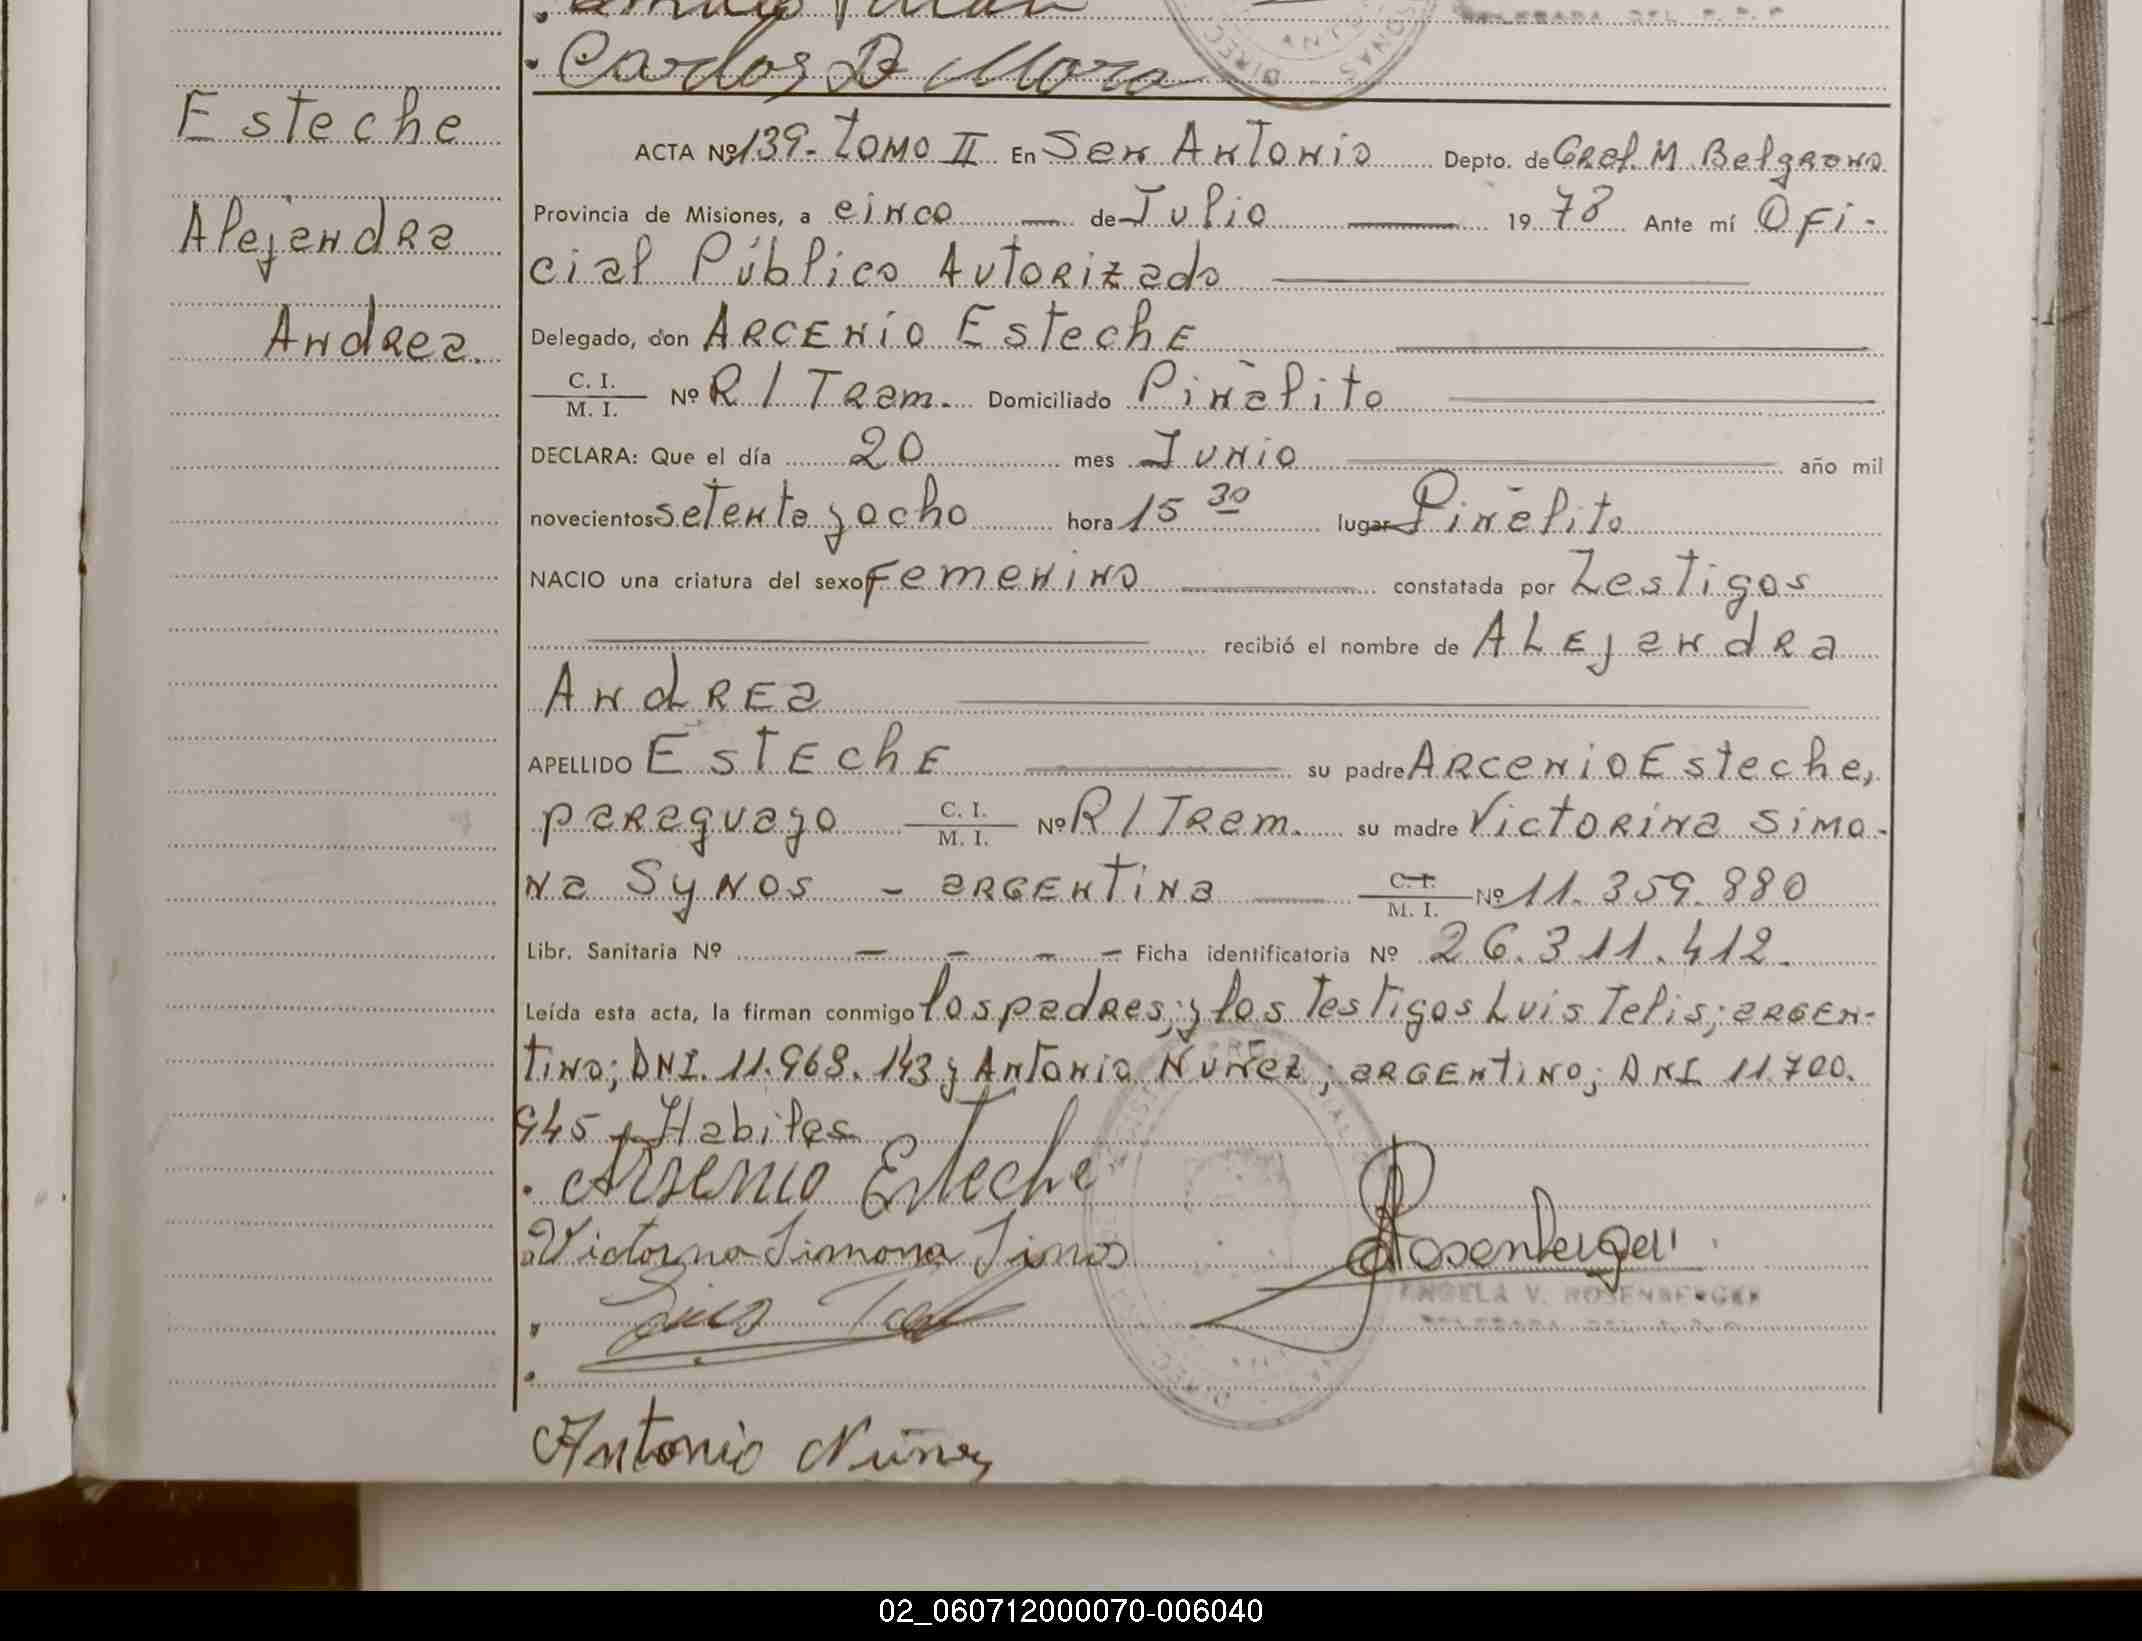 Carlos D Mora
Esteche
Alejandra
Andrea.
ACTA Nº 139 - TOMO II En San Antonio Depto. de Gral. M. Belgrano
Provincia de Misiones, a cinco — de Julio — 19 78 Ante mí Ofi-
cial Público Autorizado
Delegado, don ARCENio EstechE
C. I. / M. I. Nº R / TRam. Domiciliado Piñalito
DECLARA: Que el día 20 mes Junio año mil
novecientos setenta y ocho hora 15 30 lugar Piñalito
NACIO una criatura del sexo Femenino constatada por Testigos
recibió el nombre de ALEjandRa
AndREa
APELLIDO EsTEchE su padre ARcenio Esteche,
paRaguayo C. I. / M. I. Nº R / TRam. su madre VicTORina Simo-
na Synos - aRGEnTina — C. I. / M. I. Nº 11.359.880
Libr. Sanitaria Nº — — — — Ficha identificatoria Nº 26.311.412.
Leída esta acta, la firman conmigo los padRes; y los Testigos Luis Telis; aRGEn-
Tino; DNI. 11.968.143 y Antonio Nuñez; aRGEntino; DNI 11.700.
945 - Habiles
Arsenio Esteche
Victorina Simona Sinos
Rosenberger
ANGELA V. ROSENBERGER
Antonio Núñez
02_060712000070-006040